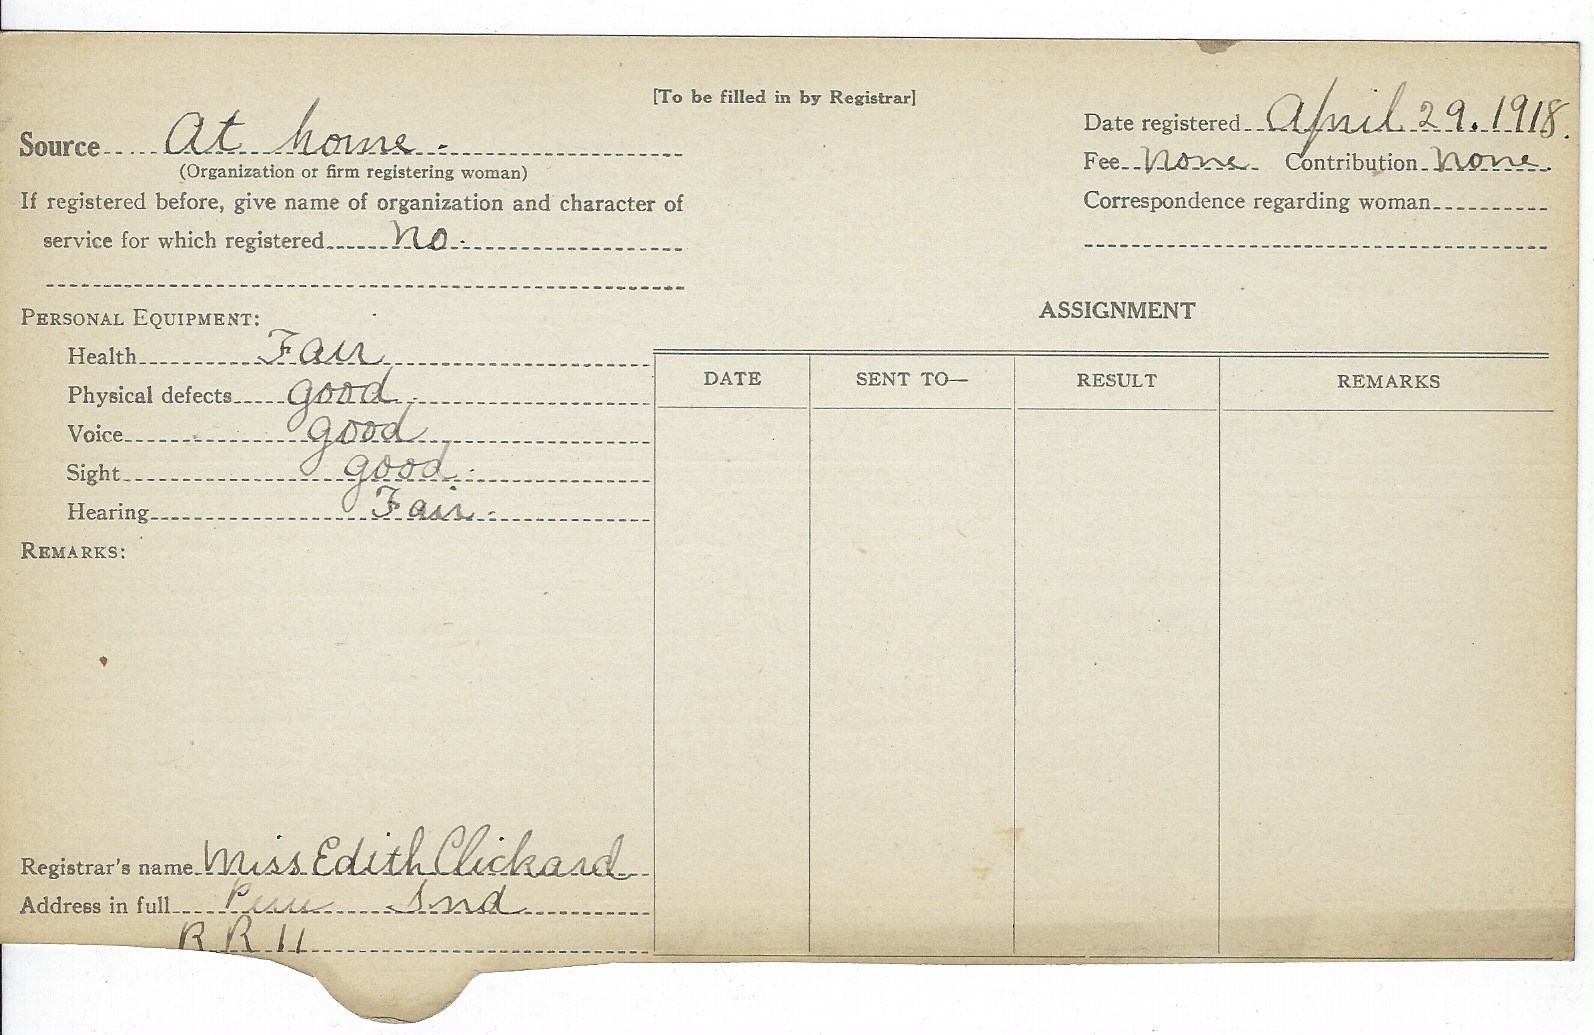 [To be filled in by Registrar]
Source At home.
(Organization or firm registering woman)
If registered before, give name of organization and character of
service for which registered No.
Date registered April 29. 1918.
Fee None Contribution None.
Correspondence regarding woman
PERSONAL EQUIPMENT:
Health Fair
Physical defects good
Voice good
Sight good
Hearing Fair
REMARKS:
Registrar's name Miss Edith Clickard
Address in full Peru Ind
R R 11
ASSIGNMENT
DATE SENT TO— RESULT REMARKS